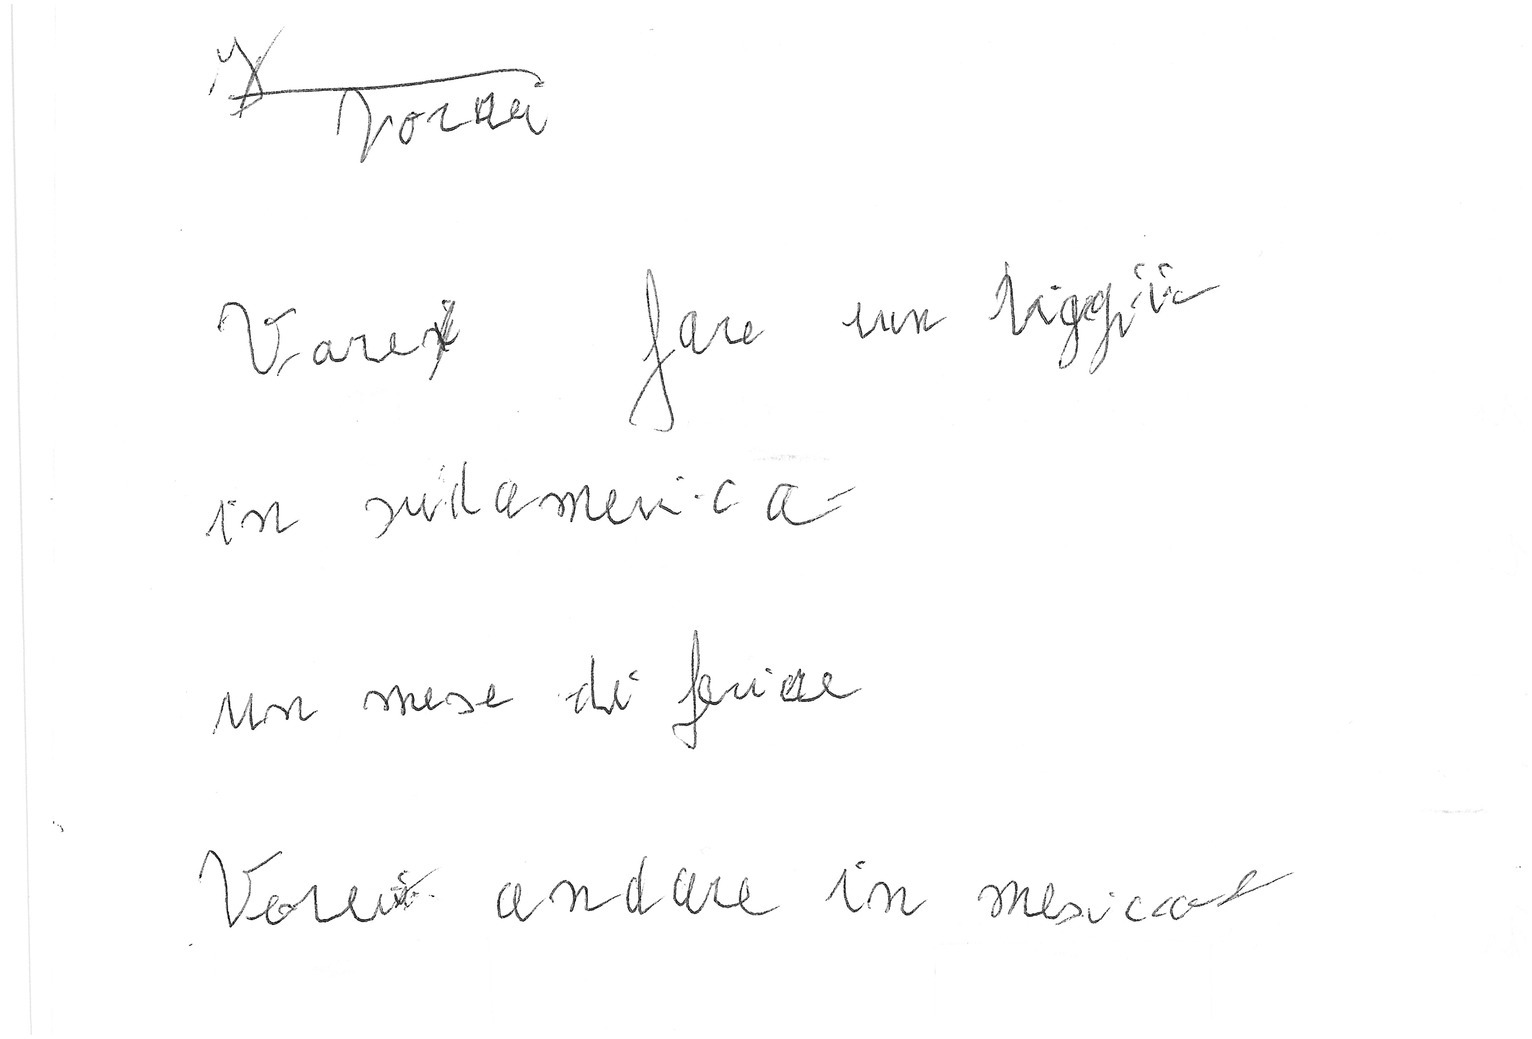 Vorei
Vorei fare un
in sudamerica
un mese di feriae
Vorei andare in mesicco